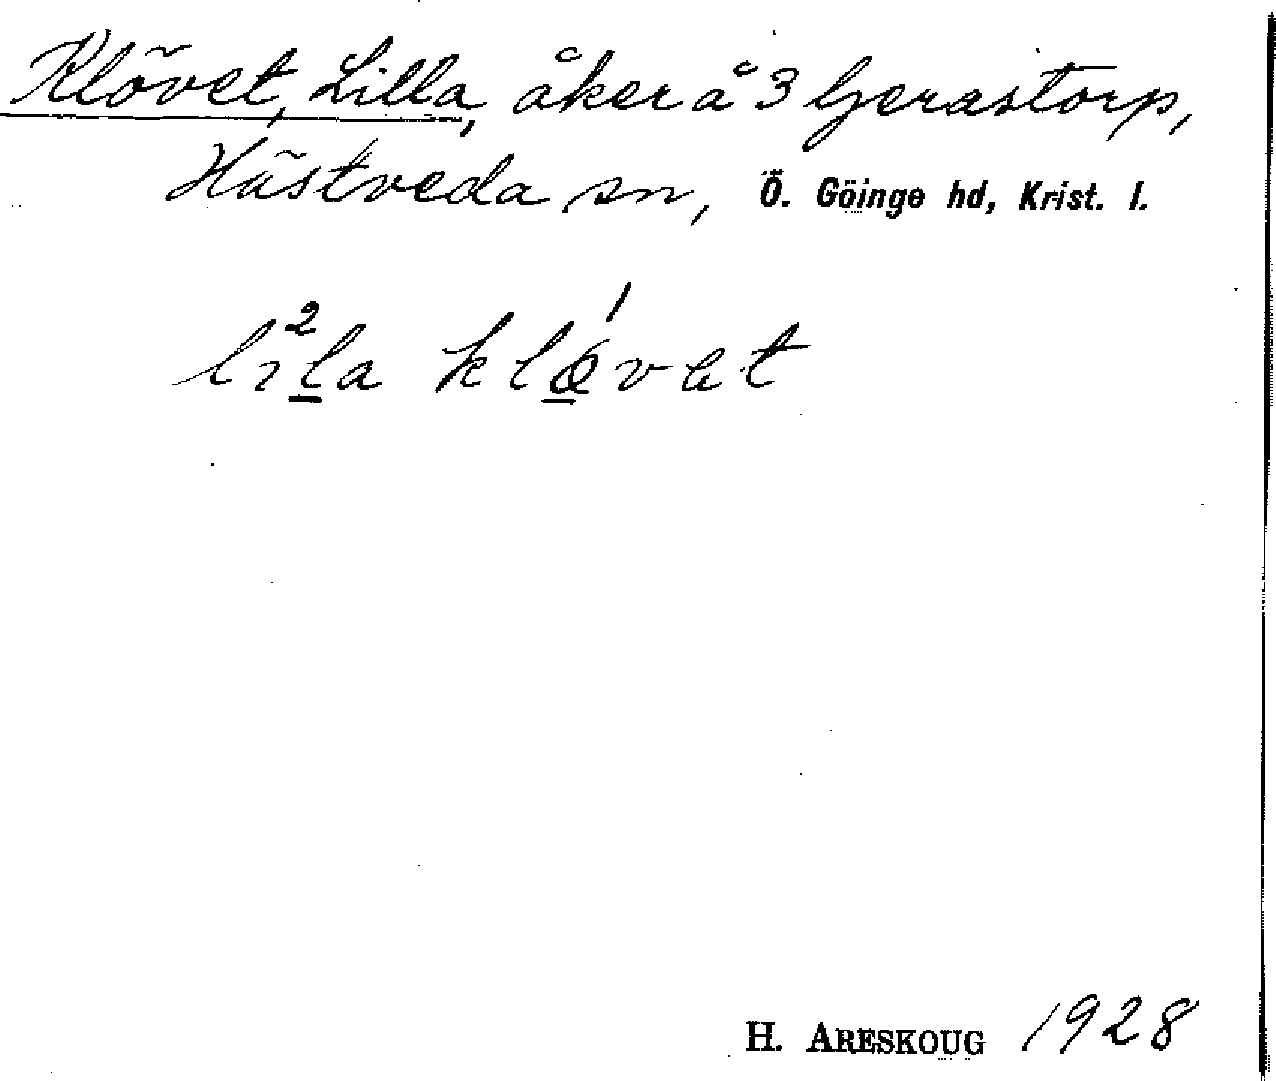 Klövet, Lilla, åker å 3 Gerastorp,
Hästveda sn, Ö. Göinge hd, Krist. l.
li²la klǿvet
H. ARESKOUG 1928